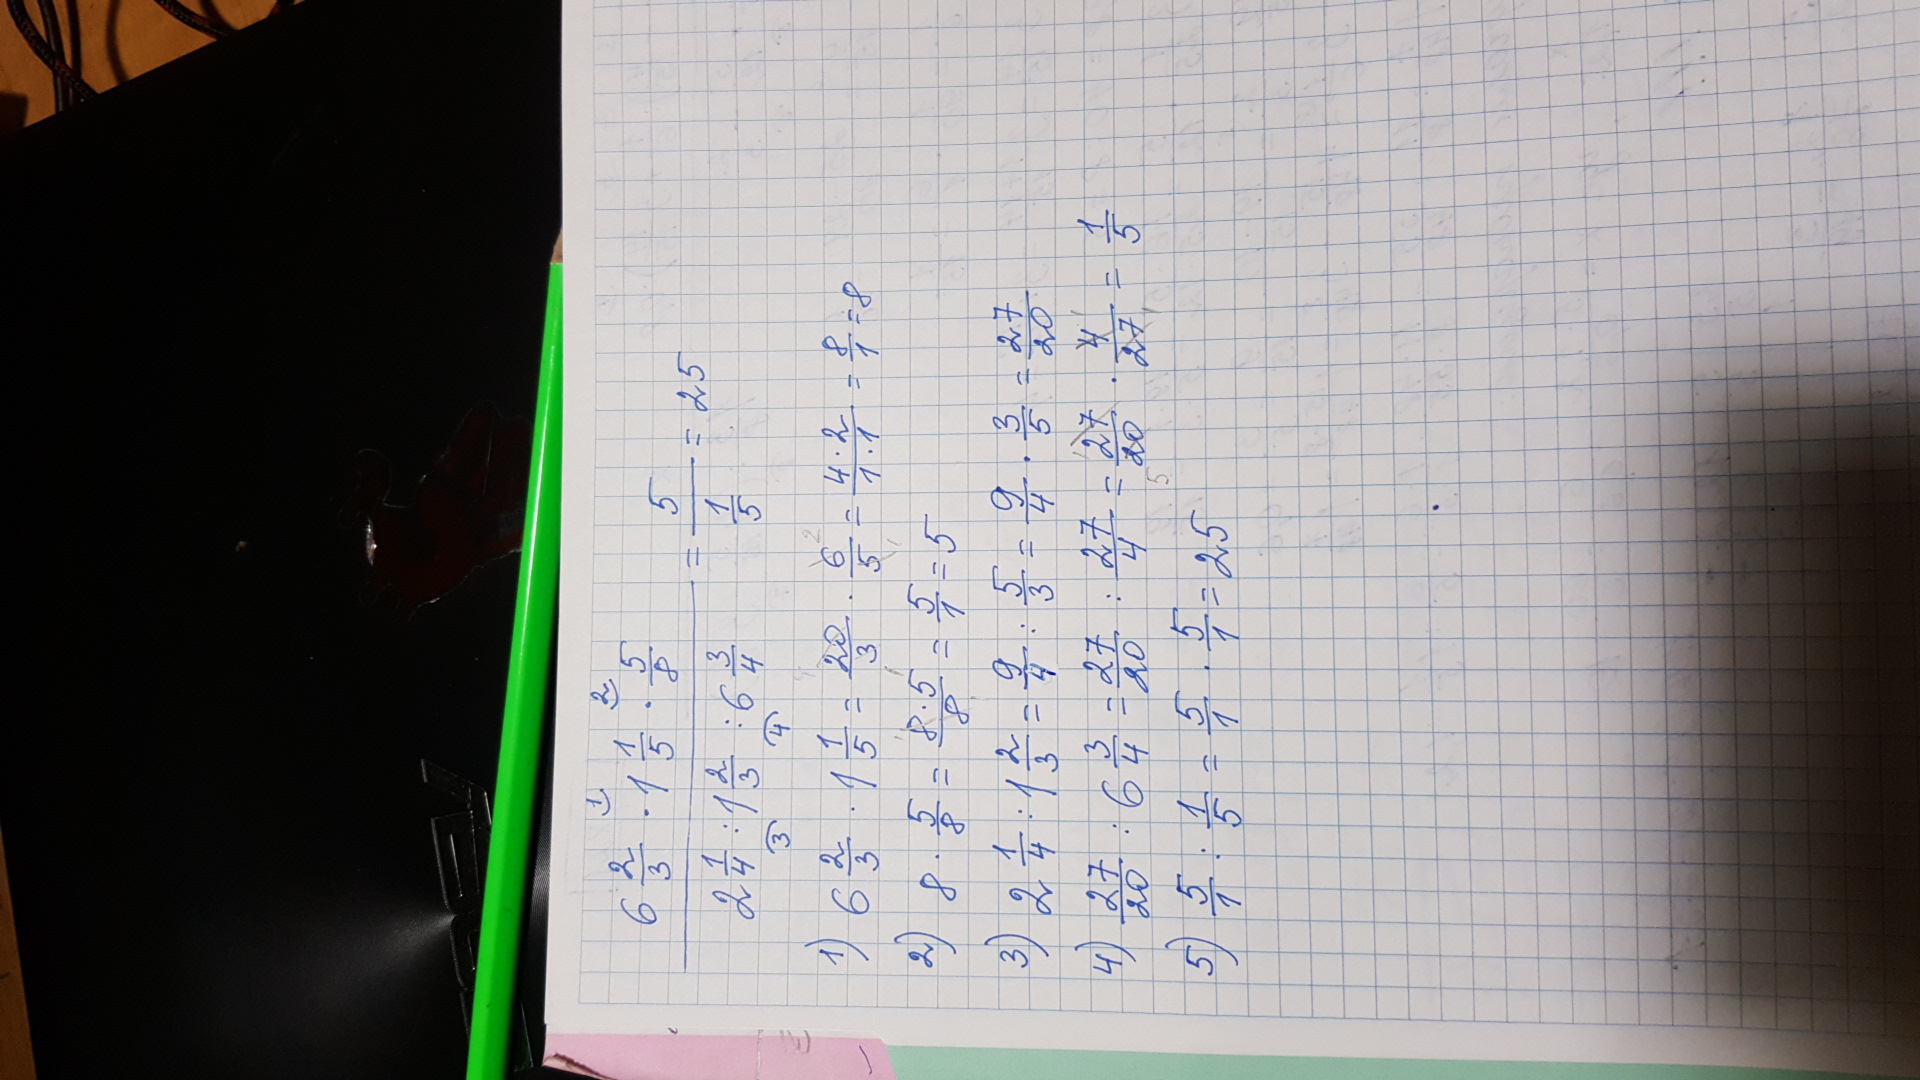 1) 2)
6 2/3 · 1 1/5 · 5/8
――― = 5 / (1/5) = 25
2 1/4 : 1 2/3 : 6 3/4
(3) (4)
1) 6 2/3 · 1 1/5 = 20/3 · 6/5 = 4·2/1·1 = 8/1 = 8
2) 8 · 5/8 = 8·5/8 = 5/1 = 5
3) 2 1/4 : 1 2/3 = 9/4 : 5/3 = 9/4 · 3/5 = 27/20
4) 27/20 : 6 3/4 = 27/20 : 27/4 = 27/20 · 4/27 = 1/5
5) 5/1 : 1/5 = 5/1 · 5/1 = 25